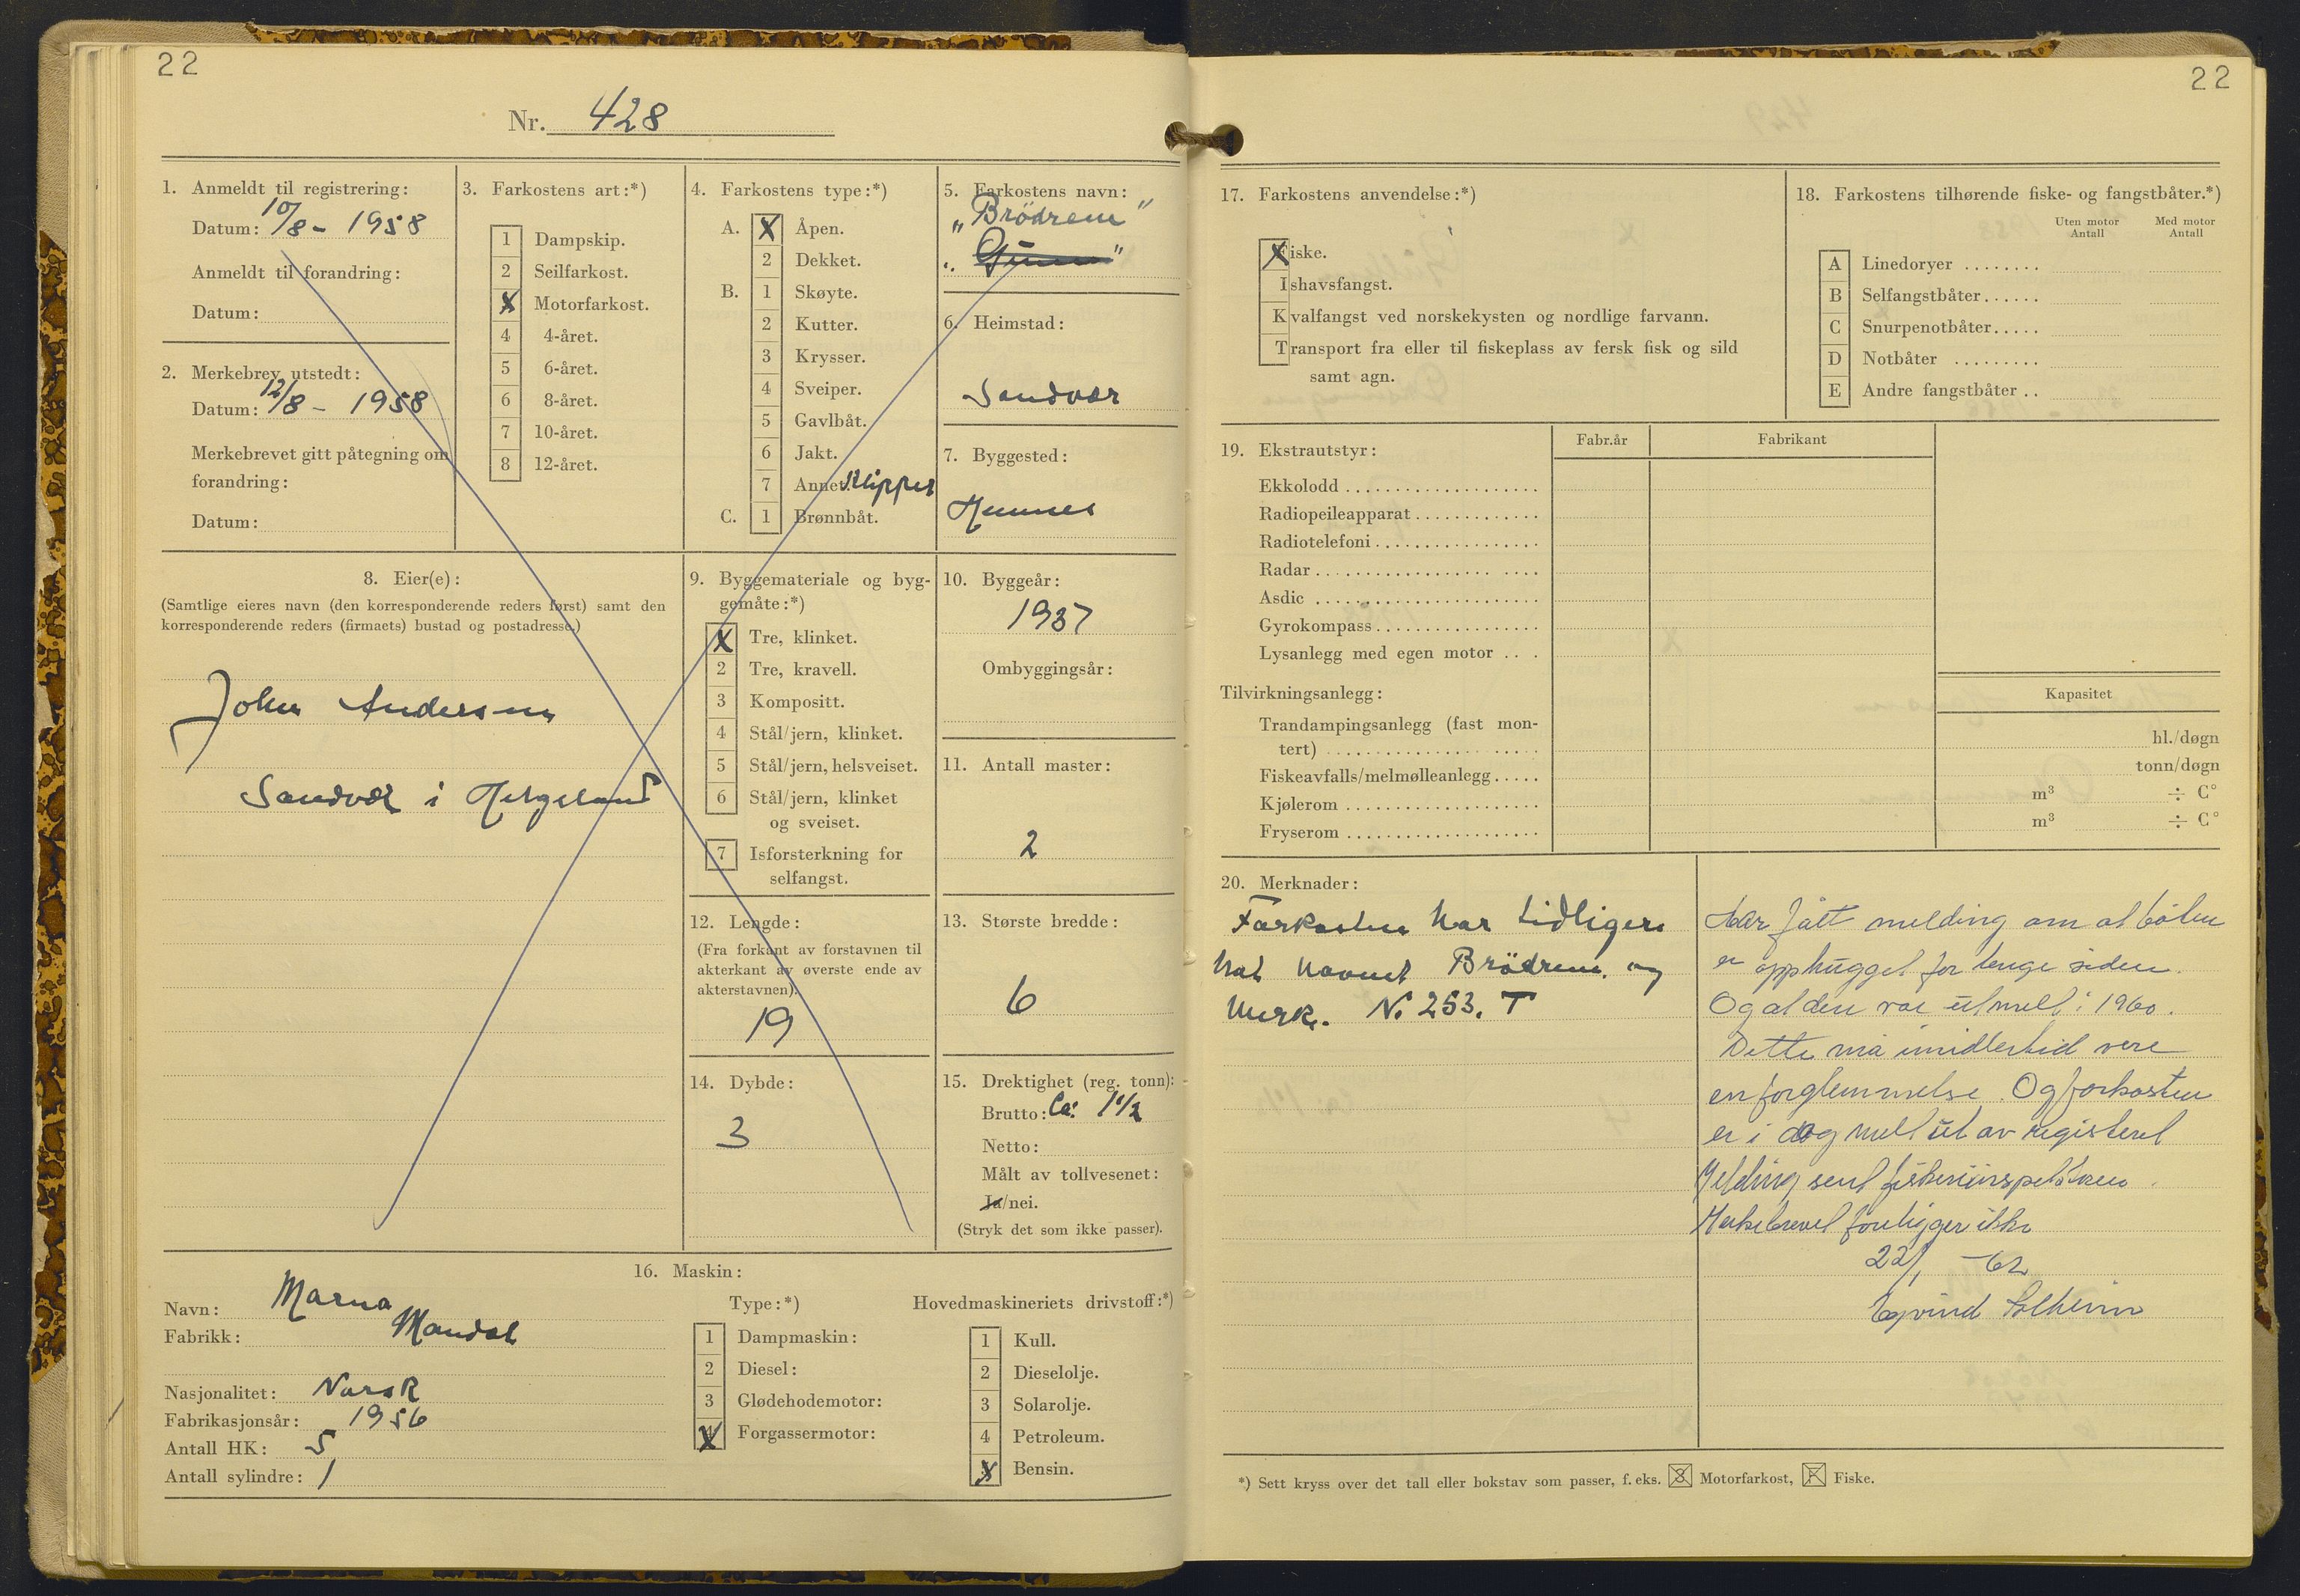 22
Nr. 428
1. Anmeldt til registrering:
Datum: 10/8 - 1958
Anmeldt til forandring:
Datum:
2. Merkebrev utstedt:
Datum: 12/8 - 1958
Merkebrevet gitt påtegning om
forandring:
Datum:
3. Farkostens art:*)
1 Dampskip.
2 Seilfarkost.
X Motorfarkost.
4 4-året.
5 6-året.
6 8-året.
7 10-året.
8 12-året.
4. Farkostens type:*)
A. X Åpen.
2 Dekket.
B. 1 Skøyte.
2 Kutter.
3 Krysser.
4 Sveiper.
5 Gavlbåt.
6 Jakt.
7 Annet.
C. 1 Brønnbåt.
5. Farkostens navn:
„Brödrene"
6. Heimstad:
Sandvær
7. Byggested:
8. Eier(e):
(Samtlige eieres navn (den korresponderende reders først) samt den
korresponderende reders (firmaets) bustad og postadresse.)
John Andersen
Sandvær i Helgeland
9. Byggemateriale og byg-
gemåte:*)
X Tre, klinket.
2 Tre, kravell.
3 Kompositt.
4 Stål/jern, klinket.
5 Stål/jern, helsveiset.
6 Stål/jern, klinket
og sveiset.
7 Isforsterkning for
selfangst.
10. Byggeår:
1937
Ombyggingsår:
11. Antall master:
2
12. Lengde:
(Fra forkant av forstavnen til
akterkant av øverste ende av
akterstavnen).
19
13. Største bredde:
6
14. Dybde:
3
15. Drektighet (reg. tonn):
Brutto: Ca. 1 1/2
Netto:
Målt av tollvesenet:
Ja/nei.
(Stryk det som ikke passer).
16. Maskin:
Navn: Marna
Fabrikk: Mandal
Nasjonalitet: Norsk
Fabrikasjonsår: 1956
Antall HK: 5
Antall sylindre: 1
Type:*)
1 Dampmaskin:
2 Diesel:
3 Glødehodemotor:
X Forgassermotor:
Hovedmaskineriets drivstoff:*)
1 Kull.
2 Dieselolje.
3 Solarolje.
4 Petroleum.
X Bensin.
22
17. Farkostens anvendelse:*)
Fiske.
Ishavsfangst.
Kvalfangst ved norskekysten og nordlige farvann.
Transport fra eller til fiskeplass av fersk fisk og sild
samt agn.
18. Farkostens tilhørende fiske- og fangstbåter.*)
Uten motor Med motor
Antall Antall
A Linedoryer ........
B Selfangstbåter......
C Snurpenotbåter.....
D Notbåter .........
E Andre fangstbåter ..
19. Ekstrautstyr:
Fabr.år Fabrikant
Ekkolodd ....................
Radiopeileapparat .............
Radiotelefoni .................
Radar .......................
Asdic .......................
Gyrokompass .................
Lysanlegg med egen motor ....
Tilvirkningsanlegg:
Kapasitet
Trandampingsanlegg (fast mon-
tert) ...................... hl./døgn
Fiskeavfalls/melmølleanlegg ..... tonn/døgn
Kjølerom .................... m³ ÷ C°
Fryserom .................... m³ ÷ C°
20. Merknader:
Farkosten har tidligere
hat navnet Brödrene. og
Merke. N. 253. T
Har fått melding om at båten
er opphugget for lenge siden.
Og at den var utmelt i 1960.
Dette må imidlertid vere
en forglemmelse. Og farkosten
er i dag melt ut av registeret
Melding sent fiskeriinspektören.
Merkebrevet foreligger ikke
22/1 - 62
Eyvind Solheim
*) Sett kryss over det tall eller bokstav som passer, f. eks. 3 Motorfarkost, F Fiske.